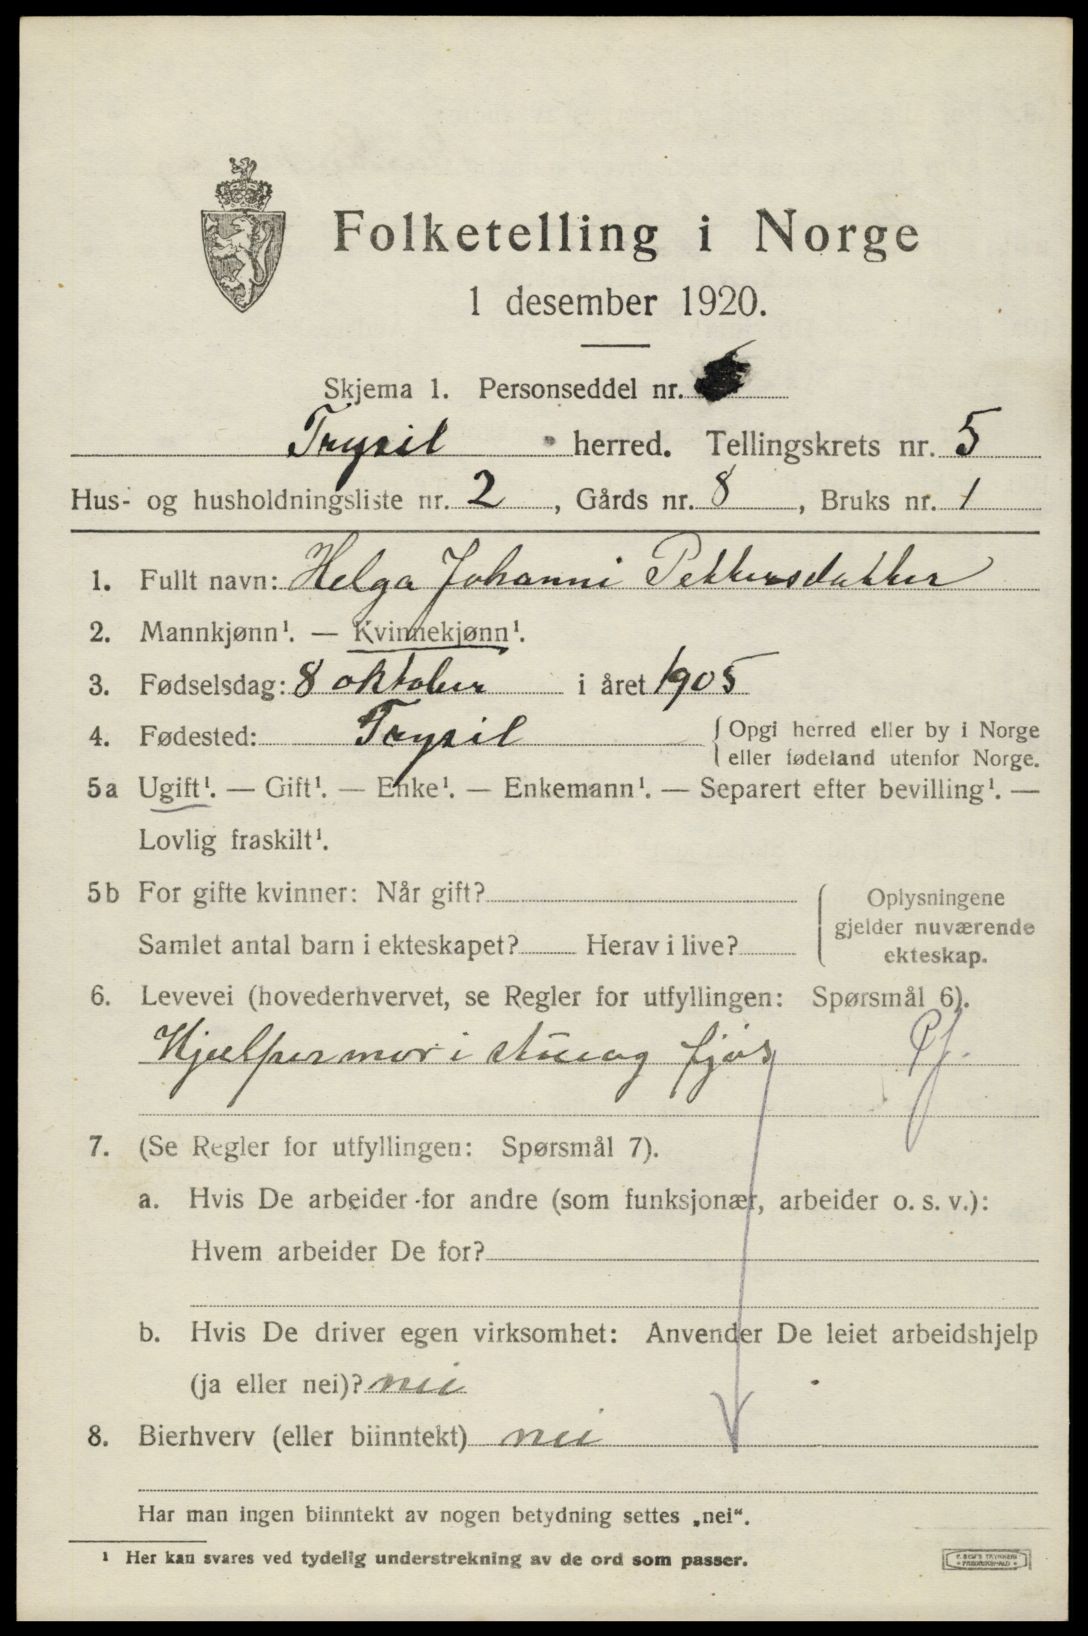 Folketelling i Norge
1 desember 1920.
Skjema 1. Personseddel nr.
Trysil herred. Tellingskrets nr. 5
Hus- og husholdningsliste nr. 2, Gårds nr. 8, Bruks nr. 1
1. Fullt navn: Helga Johanni Pekkersdukker
2. Mannkjønn¹. — Kvinnekjønn¹.
3. Fødselsdag: 8 oktober i året 1905
4. Fødested: Trysil { Opgi herred eller by i Norge
eller fødeland utenfor Norge.
5a Ugift¹. — Gift¹. — Enke¹. — Enkemann¹. — Separert efter bevilling¹. —
Lovlig fraskilt¹.
5b For gifte kvinner: Når gift?
Samlet antal barn i ekteskapet? Herav i live?
{ Oplysningene
gjelder nuværende
ekteskap.
6. Levevei (hovederhvervet, se Regler for utfyllingen: Spørsmål 6).
Hjælper mor i stue og fjøs Pf.
7. (Se Regler for utfyllingen: Spørsmål 7).
a. Hvis De arbeider for andre (som funksjonær, arbeider o. s. v.):
Hvem arbeider De for?
b. Hvis De driver egen virksomhet: Anvender De leiet arbeidshjelp
(ja eller nei)? nei
8. Bierhverv (eller biinntekt) nei
Har man ingen biinntekt av nogen betydning settes „nei“.
¹ Her kan svares ved tydelig understrekning av de ord som passer.